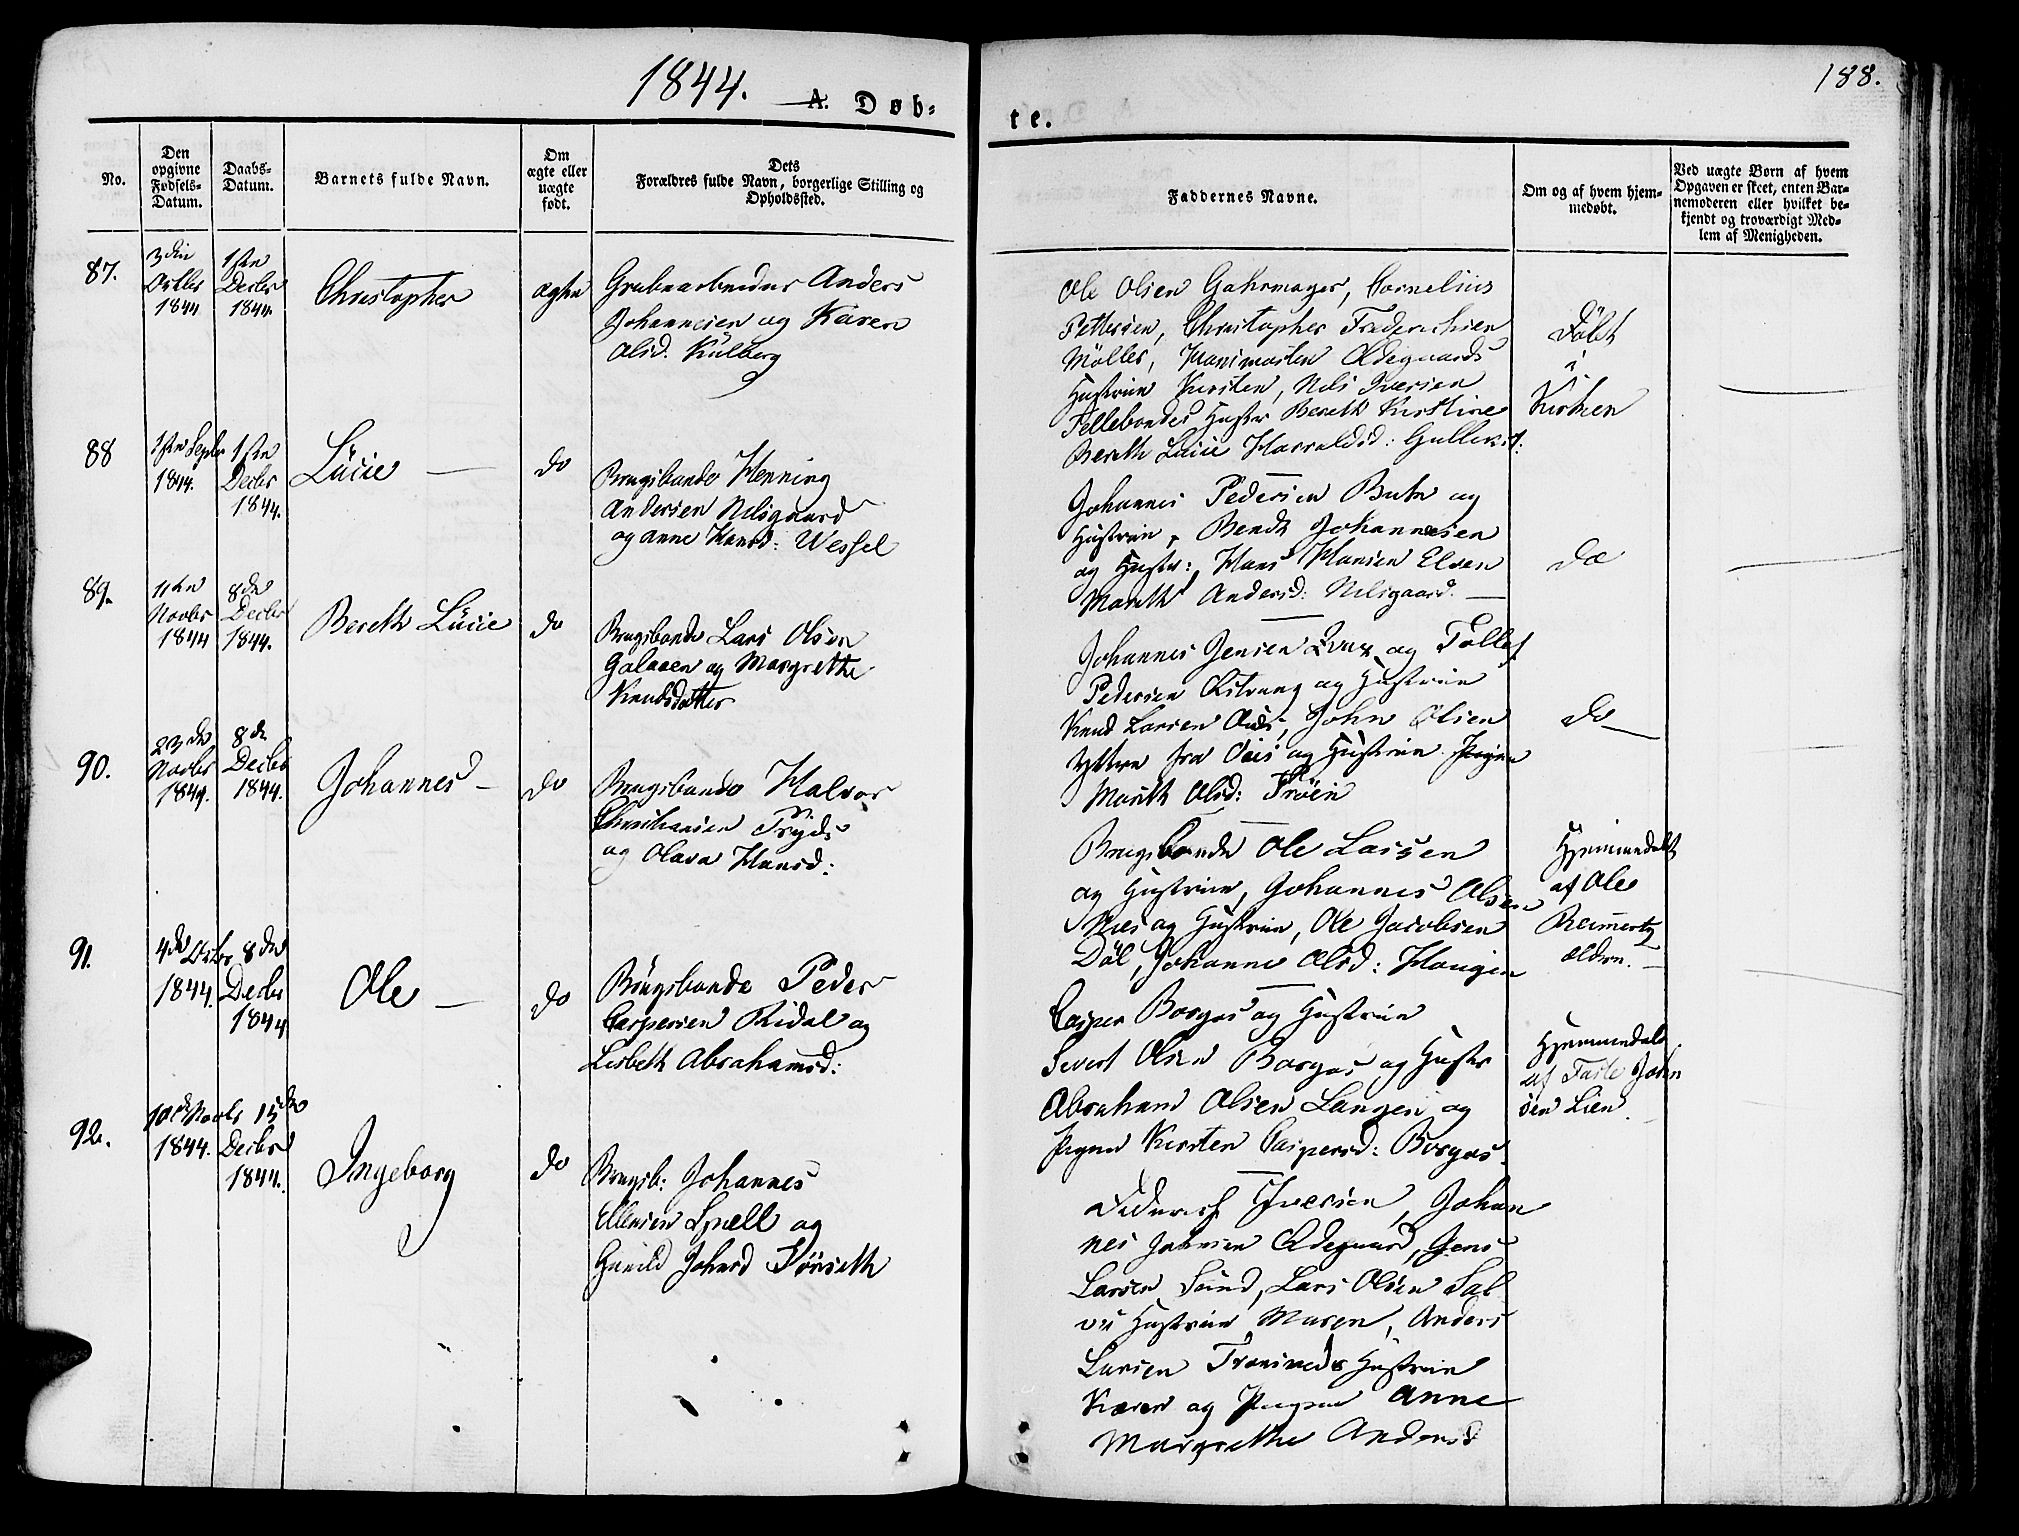 1844.
A. Døb-
te.
188.
No.
Den
opgivne
Fødsels-
Datum.
Daabs-
Datum.
Barnets fulde Navn.
Om
ægte eller
uægte
født.
Dets
Forældres fulde Navn, borgerlige Stilling og
Opholdssted.
Faddernes Navne.
Om og af hvem hjem-
medøbt.
Ved uægte Børn af hvem
Opgaven er skeet, enten Bar-
nemoderen eller hvilket be-
kjendt og troværdigt Med-
lem af Menigheden.
87.
3die
Octbr
1844
1ste
Decbr
1844.
Christopher
ægte
Grubearbeider Anders
Johannesen og Karen
Olsd. Kulberg
Ole Olsen Gahrmager, Cornelius
Pettersen, Christopher Frederichsen
Møller, Hansmarten Ødegaards
Hustrue Kirsten, Nils Iversen
Hustr Bereth Kirstine
Bereth Lucie Harraldsd:
Døbt
i
Kirken
88
1ste Septbr
1844.
1ste
Decbr
1844.
Lücie
do
Brugsbonde Henning
Andersen Nilsgaard
og Anne Hansd: Wessel
Johannes Pedersen og
Hustrue, Bendt Johannesen
og Hustr: Hans Hansen Elven
Mareth Andersd: Nilsgaard.
do
89.
11te
Novbr
1844
8de
Decbr
1844.
Bereth Lücie
do
Brugsbonde Lars Olsen
Galaaen og Margrethe
Knudsdatter
Johannes Jensen og Tollef
Pedersen og Hustrue
Knud Larsen John Olsen
fra og Hustrue Pigen
Marith Olsd: Trøen
do
90.
23de
Novbr
1844.
8de
Decbr
1844.
Johannes
do
Brugsbonde Halvor
Christiansen
og Olava Hansd:
Brugsbonde Ole Larsen
og Hustrue, Johannes Olsen
Næs og Hustrue, Ole Jacobsen
Døl, Johanne Olsd: Haugen
Hjemmedøbt
af Ole
Reimertz
ældre.
91.
4de Octbr
1844.
8de
Decbr
1844
Ole
do
Brugsbonde Peder
Caspersen Ridal og
Lisbeth Abrahamsd:
Casper Borgos og Hustrue
Sivert Olsen Borgos og Hustr
Abraham Olsen Langen og
Pigen Kirsten Caspersd: Borgos.
Hjemmedøbt
af John
sen Lien.
92.
10de Novbr
1844.
15de
Decbr
1844.
Ingeborg
do
Brugsb: Johannes
Ellensen Spell og
Gunild Johnsd Tørseth
Diderich Iversen, Johan
nes Johnsen Ødegaard, Jens
Larsen Sund, Lars Olsen Sal
Hustrue Maren, Anders
Larsen Hustrue
Karen og Pigen Anne
Margrethe Andersd